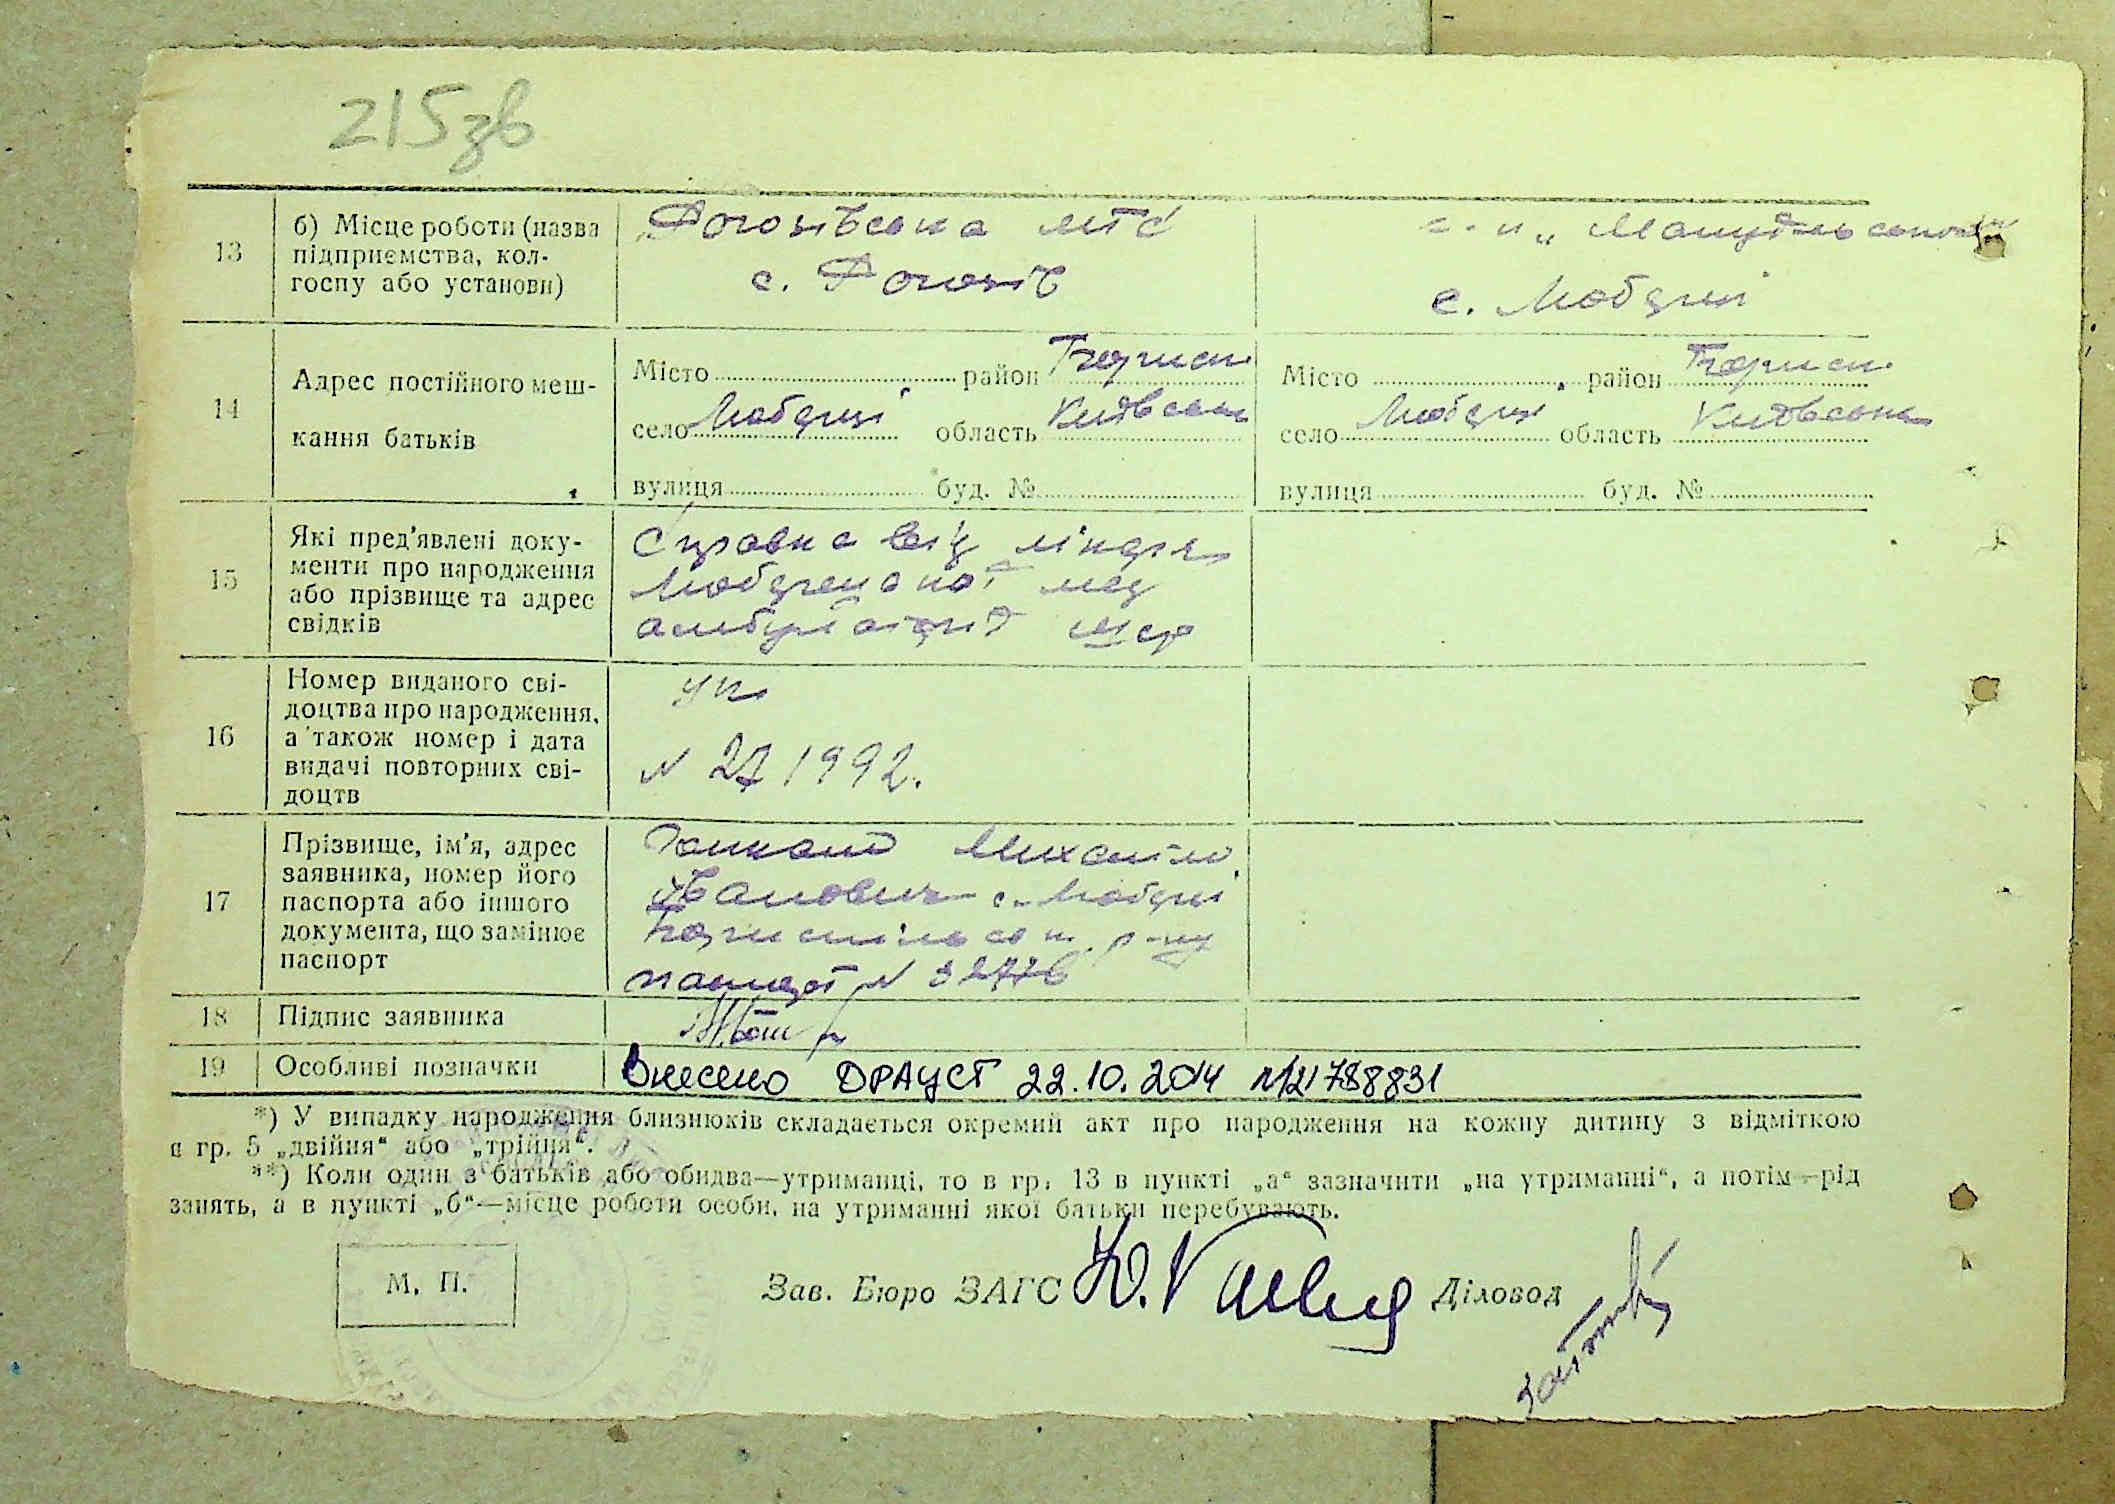 215зв
13
б) Місце роботи (назва
підприємства, кол-
госпу або установи)
Рогозівська МТС
с. Рогозів
с. Любарці
14
Адрес постійного меш-
кання батьків
Місто район Борисп
село Любарці область Київська
вулиця буд. №
Місто район Борисп
село Любарці область Київська
вулиця буд. №
15
Які пред'явлені доку-
менти про народження
або прізвище та адрес
свідків
Справка від лікаря
Любарецької мед
амбулаторії
16
Номер виданого сві-
доцтва про народження,
а також номер і дата
видачі повторних сві-
доцтв
N 27 1992.
17
Прізвище, ім'я, адрес
заявника, номер його
паспорта або іншого
документа, що замінює
паспорт
Михайло
Іванович с. Любарці
Бориспільськ. р-ну
паспорт N
18
Підпис заявника
19
Особливі позначки
Внесено ДРАЦСГ 22.10.2014 №21788831
*) У випадку народження близнюків складається окремий акт про народження на кожну дитину з відміткою
в гр. 5 „двійня“ або „трійня“.
**) Коли один з батьків або обидва—утриманці, то в гр. 13 в пункті „а“ зазначити „на утриманні“, а потім—рід
занять, а в пункті „б“—місце роботи особи, на утриманні якої батьки перебувають.
М. П.
Зав. Бюро ЗАГС
Діловод